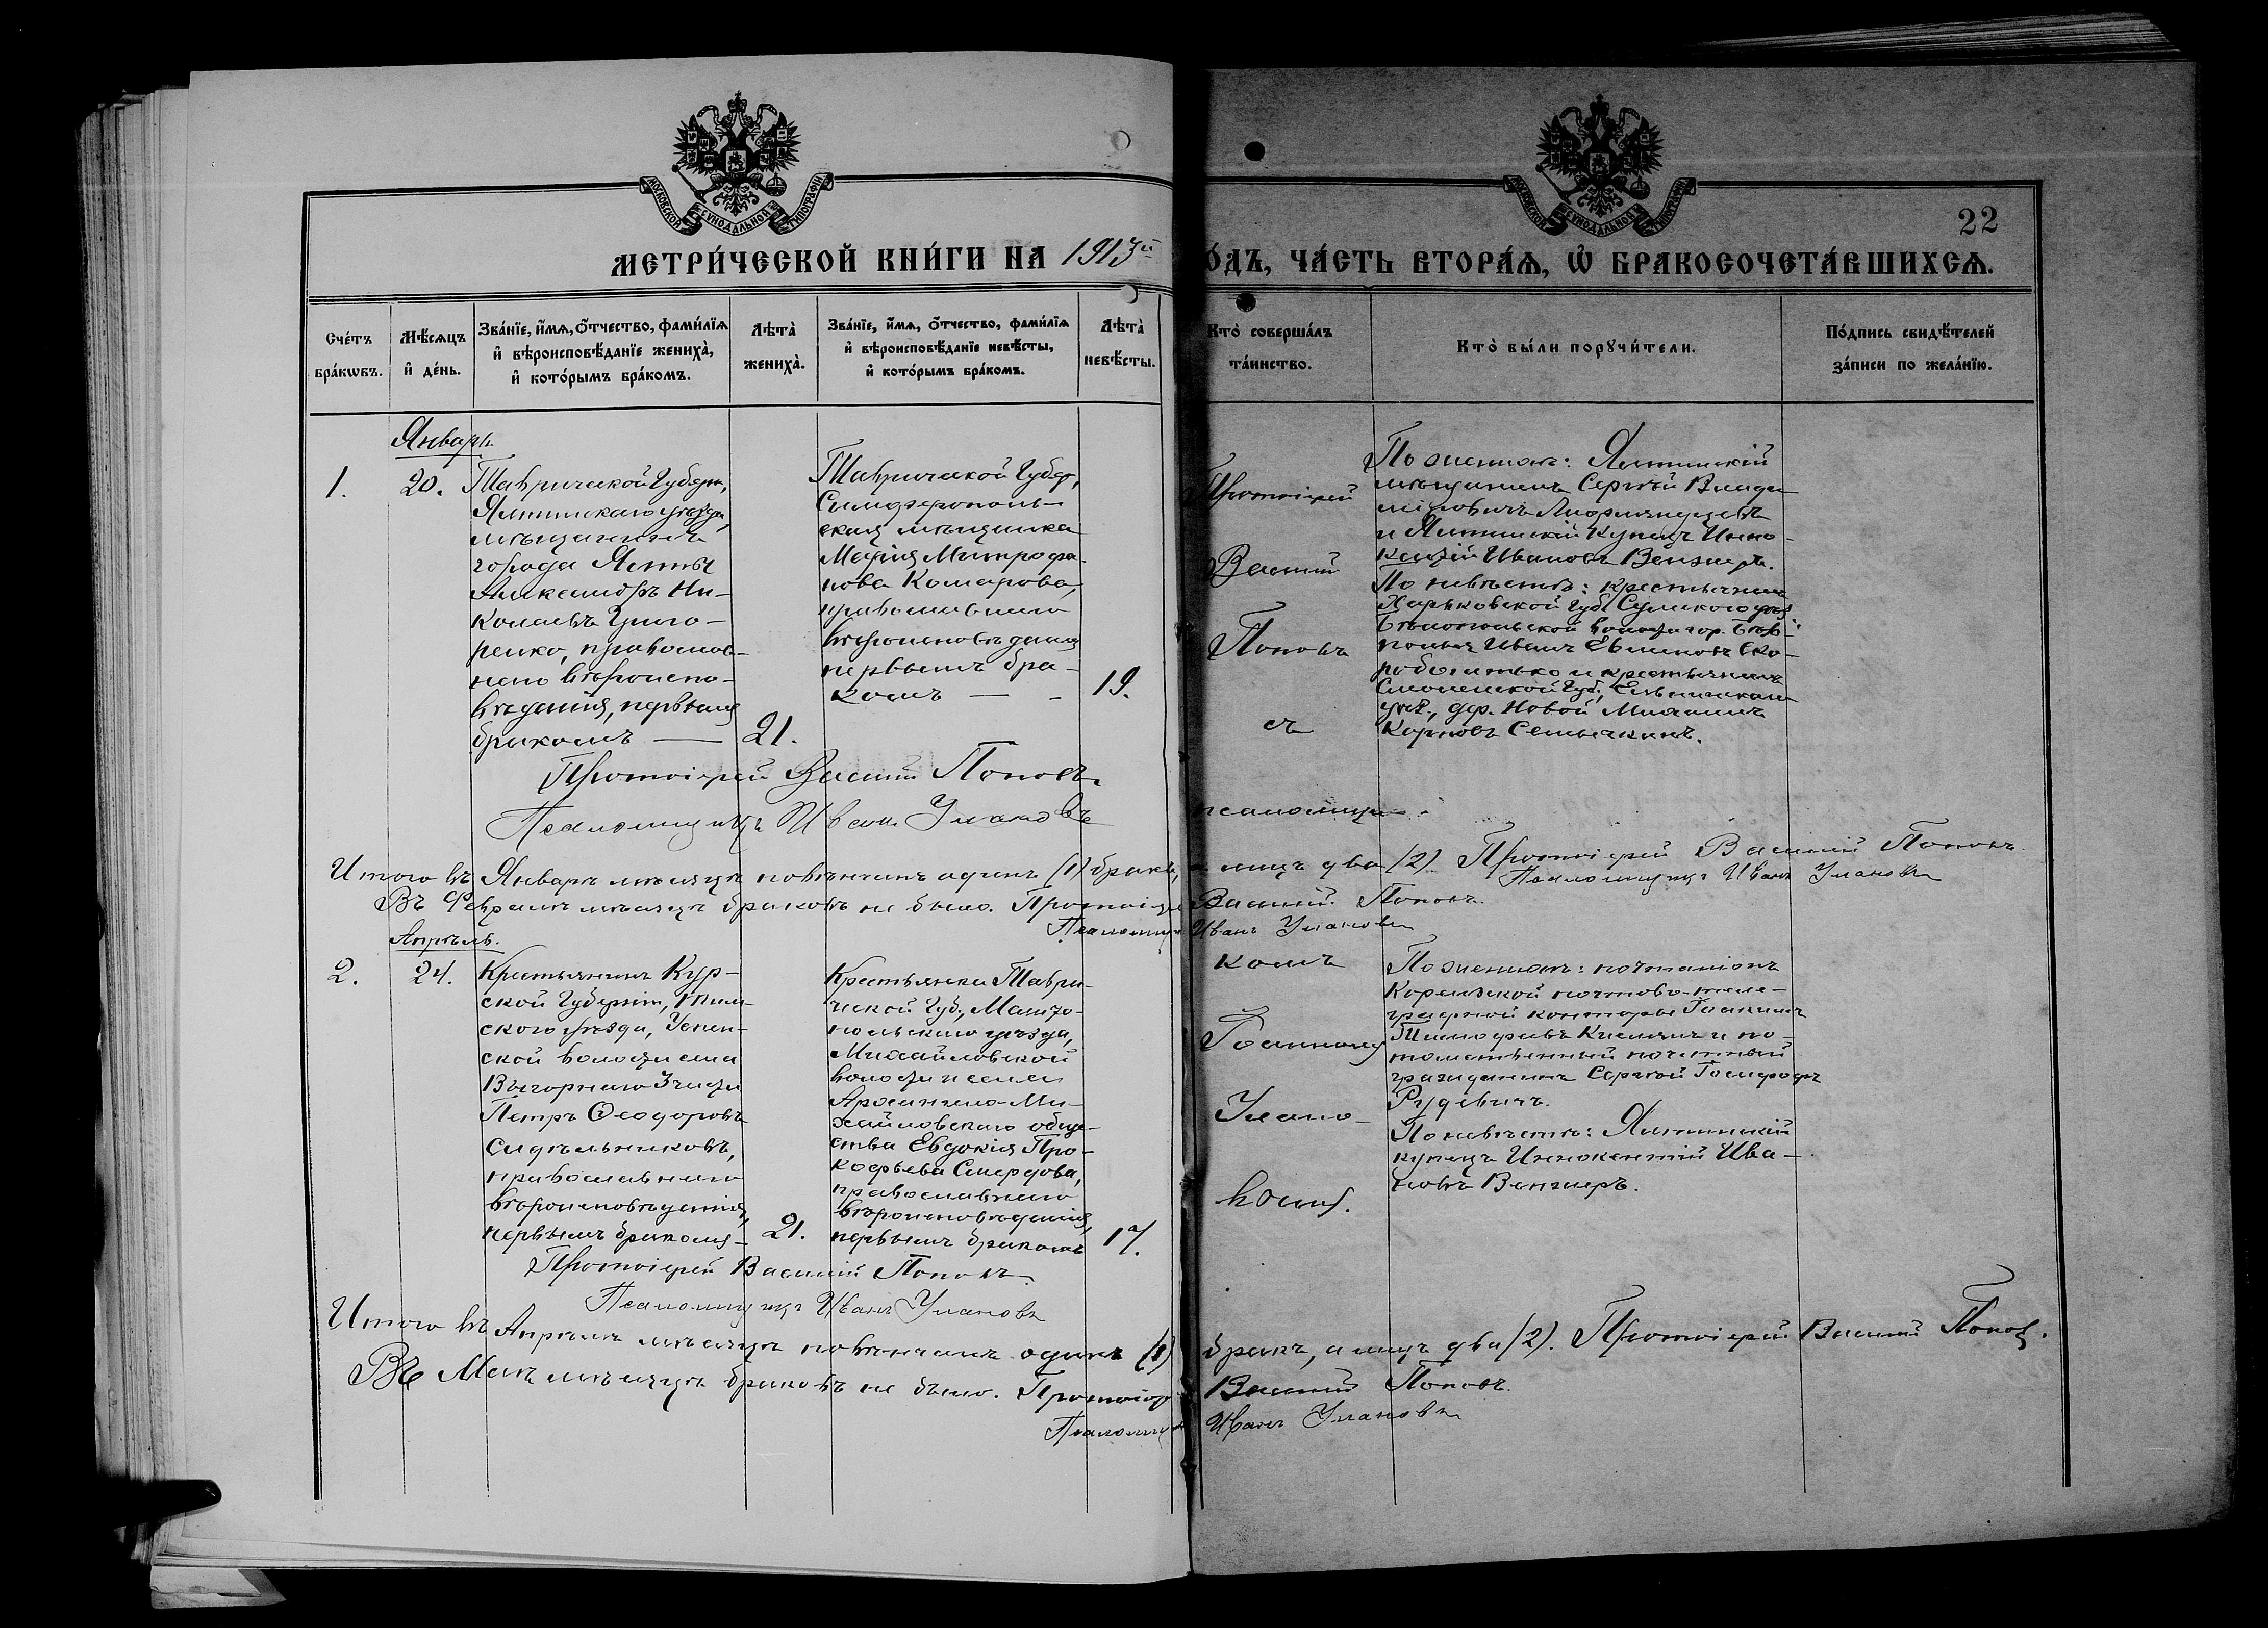 МОСКОВСКОЙ СѴНОДАЛЬНОЙ ТИПОГРАФІИ
МОСКОВСКОЙ СѴНОДАЛЬНОЙ ТИПОГРАФІИ
22
МЕТРИ́ЧЕСКОЙ КНИ́ГИ НА 1913й
О́ДЪ, ЧА́СТЬ ВТОРА́Ѧ, Ѡ҆ БРАКОСОЧЕТА́ВШИХСѦ.
Сче́тъ
бра́кѡвъ.
Мѣ́сѧцъ
и҆ де́нь.
Зва́нїе, и҆́мѧ, ѻ҆́тчество, фами́лїѧ
и҆ вѣроисповѣ́данїе жениха̀,
и҆ кото́рымъ бра́комъ.
Лѣта̀
жениха̀.
Зва́нїе, и҆́мѧ, ѻ҆́тчество, фами́лїѧ
и҆ вѣроисповѣ́данїе невѣ́сты,
и҆ кото́рымъ бра́комъ.
Лѣта̀
невѣ́сты.
Кто̀ соверша́лъ
та́инство.
Кто̀ бы́ли порꙋчи́тели.
По́дпись свидѣ́телей
за́писи по жела́нїю.
Январь.
1.
20.
Таврической Губерн,
Ялтинскаго уѣзда,
мѣщанинъ
города Ялты
Александръ Ни-
колаевъ Григо-
ренко, православ-
наго вѣроиспо-
вѣданія, первымъ
бракомъ —
21.
Таврической Губер,
Симферополь-
ская мѣщанка
Марія Митрофа-
нова Комарова,
православнаго
вѣроисповѣданія
первымъ бра-
комъ — -
19.
Протоіерей
Василій
Поповъ
съ
псаломщи-
По женихѣ: Ялтинскій
мѣщанинъ Сергѣй Влади-
міровичъ
и Ялтинскій Купецъ Инно-
кентій Ивановъ Венгжеръ.
По невѣстѣ: крестьянинъ
Харьковской Губ. Сумскаго уѣз.
Бѣлопольской волости гор. Бѣло-
полья Иванъ Евлиновъ Ско-
робогатько и крестьянинъ
Смоленской Губ., Ельнинскаго
уѣз., дер. Новой Михаилъ
Карповъ Семычкинъ.
Протоіерей Василій Поповъ.
Псаломщикъ Иванъ Улановъ
Итого въ Январѣ мѣсяцѣ повѣнчанъ одинъ (1) бракъ,
а лицъ два (2). Протоіерей Василій Поповъ.
Псаломщикъ Иванъ Улановъ
Въ Февралѣ мѣсяцѣ браковъ не было. Протоіерей Василій Поповъ.
Псаломщикъ Иванъ Улановъ
Апрѣль.
2.
24.
Крестьянинъ Кур-
ской Губерніи, Тим-
скаго уѣзда, Успен-
ской волости села
Выгорнаго
Петръ Ѳеодоровъ
Сидѣльниковъ,
православнаго
вѣроисповѣданія,
первымъ бракомъ-
21.
Крестьянка Таври-
ческой Губ., Мелито-
польскаго уѣзда,
Михайловской
волости села
Архангело-Ми-
хайловскаго обще-
ства Евдокія Про-
кофьева Смердова,
православнаго
вѣроисповѣданія,
первымъ бракомъ
17.
комъ
Іоанномъ
Улано-
вымъ.
По женихѣ: почталіонъ
Кореизской почтово-теле-
графной конторы Іоакимъ
Тимофеевъ Кислякъ и по-
томственный почетный
гражданинъ Сергѣй Іосифовъ
Рудевичъ.
По невѣстѣ: Ялтинскій
купецъ Иннокентій Ива-
новъ Венгжеръ.
Протоіерей Василій Поповъ.
Псаломщикъ Иванъ Улановъ
Итого въ Апрѣлѣ мѣсяцѣ повѣнчанъ одинъ (1)
бракъ, а лицъ два (2). Протоіерей Василій Поповъ.
Въ Маѣ мѣсяцѣ браковъ не было. Протоіер. Василій Поповъ.
Псаломщикъ Иванъ Улановъ